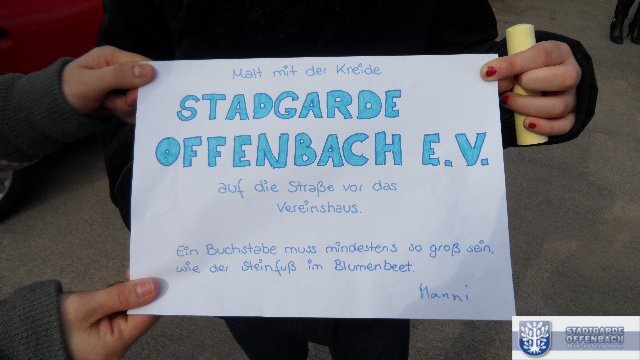 Malt mit der Kreide
STADGARDE
OFFENBACH E.V.
auf die Straße vor das
Vereinshaus.
Ein Buchstabe muss mindestens so groß sein,
wie der Steinfuß im Blumenbeet.
Hanni
STADTGARDE
OFFENBACH